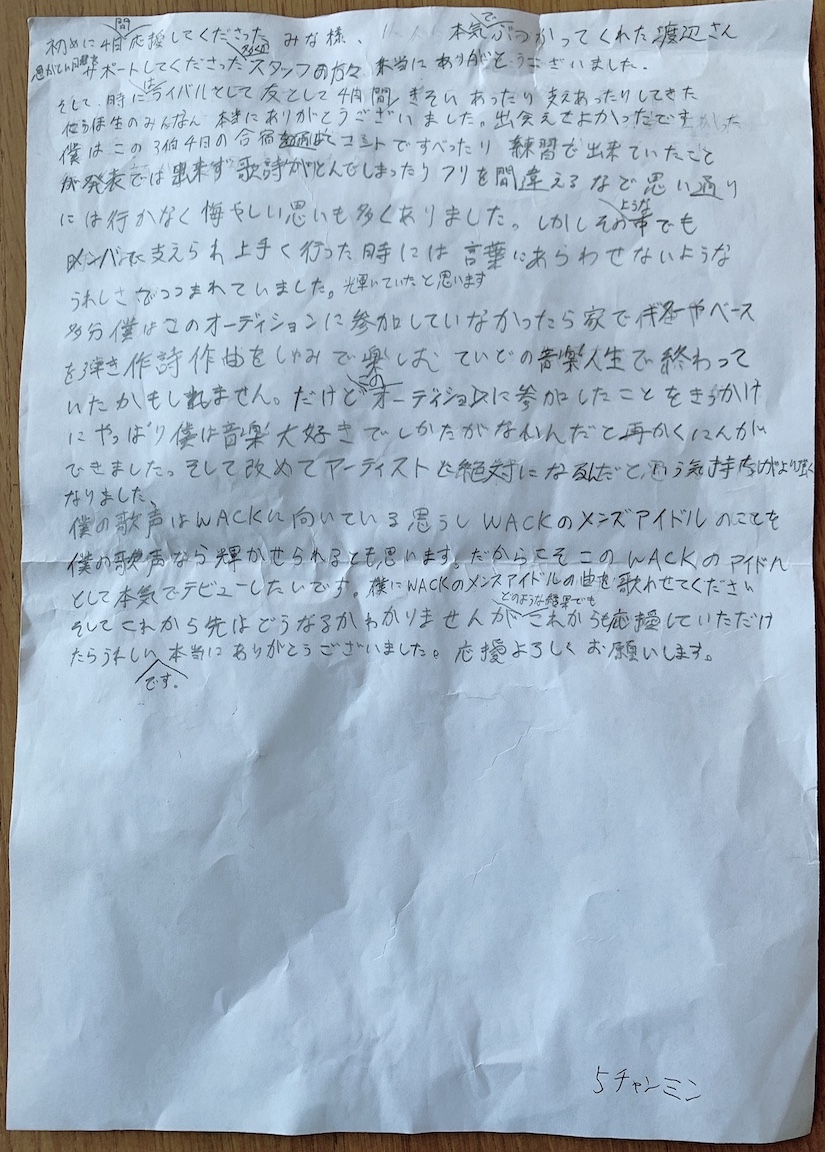 初めに4日間応援してくださった みな様、 本気でぶつかってくれた渡辺さん
サポートしてくださった多くのスタッフの方々 本当にありがとうございました。
そして、時にはライバルとして友として4日間 きそいあったり支えあったりしてきた
候補生のみんな 本当にありがとうございました。出会えてよかったです
僕はこの3伯4日の合宿を通してコントですべったり 練習で出来ていたこと
が発表では出来ず歌詩がとんでしまったりフリを間違えるなど思い通り
には行かなく悔やしい思いも多くありました。しかしそのような中でも
メンバーに支えられ上手く行った時には言葉にあらわせないような
うれしさでつつまれていました。輝いていたと思います
多分僕はこのオーディションに参加していなかったら家でギターやベース
を弾き作詩作曲をしゅみで楽しむ ていどの音楽人生で終わって
いたかもしれません。だけどこのオーディションに参加したことをきっかけ
にやっぱり僕は音楽大好きでしかたがないんだと再かくにんが
できました。そして改めてアーティストに絶対になるんだという気持ちがより強く
なりました。
僕の歌声はWACKに向いている思うし WACKのメンズアイドルのことを
僕の歌声なら輝かせられるとも思います。だからこそこのWACKのアイドル
として本気でデビューしたいです。僕にWACKのメンズアイドルの曲を歌わせてください
そしてこれから先はどうなるかわかりませんがどのような結果でもこれからも応援していただけ
たらうれしいです。本当にありがとうございました。応援よろしくお願いします。
5チャンミン